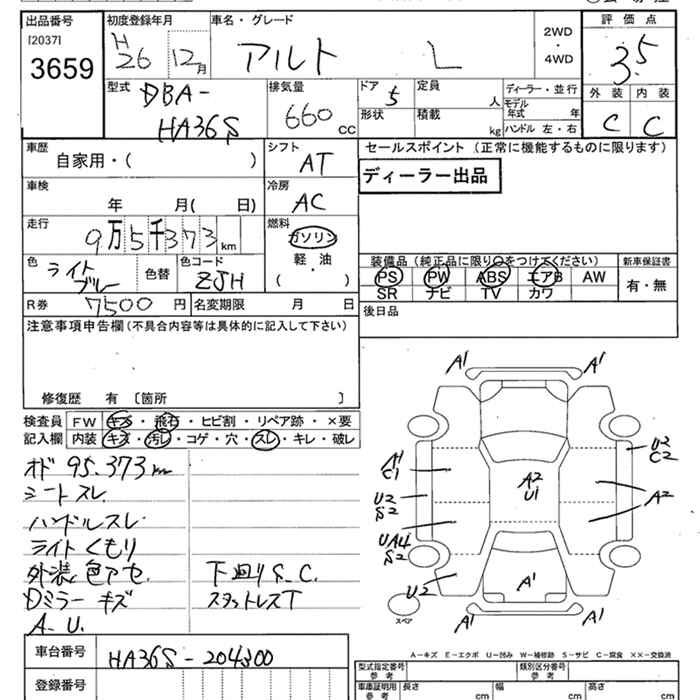 出品番号
[2037]
3659
初度登録年月
H
26
12月
車名・グレード
アルト L
2WD
・
4WD
評価点
3.5
型式
DBA-
HA36S
排気量
660
cc
ドア
5
定員
人
形状
積載
kg
ディーラー・並行
モデル
年式
年
ハンドル 左・右
外装
内装
C
C
車歴
自家用・( )
シフト
AT
車検
年 月( 日)
冷房
AC
走行
9万5千373
km
燃料
ガソリン
軽・油
( )
色
ライト
ブルー
色替
色コード
ZJH
R券
7500円
名変期限 月 日
セールスポイント (正常に機能するものに限ります)
ディーラー出品
装備品(純正品に限り○をつけてください)
PS PW ABS エアB AW
SR ナビ TV カワ
新車保証書
有・無
後日品
注意事項申告欄(不具合内容等は具体的に記入して下さい)
修復歴 有 〔箇所 〕
検査員
記入欄
FW キズ・飛石・ヒビ割・リペア跡・×要
内装 キズ・汚レ・コゲ・穴・スレ・キレ・破レ
オド 95.373km
シートスレ
ハンドルスレ
ライトくもり
外装色アセ 下廻りS.C.
Dミラーキズ スタットレスT
A.U.
A1
A1
A1
C1
U2
S2
UA4
S2
U2
A2
U1
U2
C2
A2
A1
A1
A1
スペア
A−キズ E−エクボ U−凹み W−補修跡 S−サビ C−腐食 XX−交換済
車台番号
HA36S-204300
登録番号
型式指定番号
参考
類別区分番号
参考
車庫証明用
参考
長さ cm
幅 cm
高さ cm